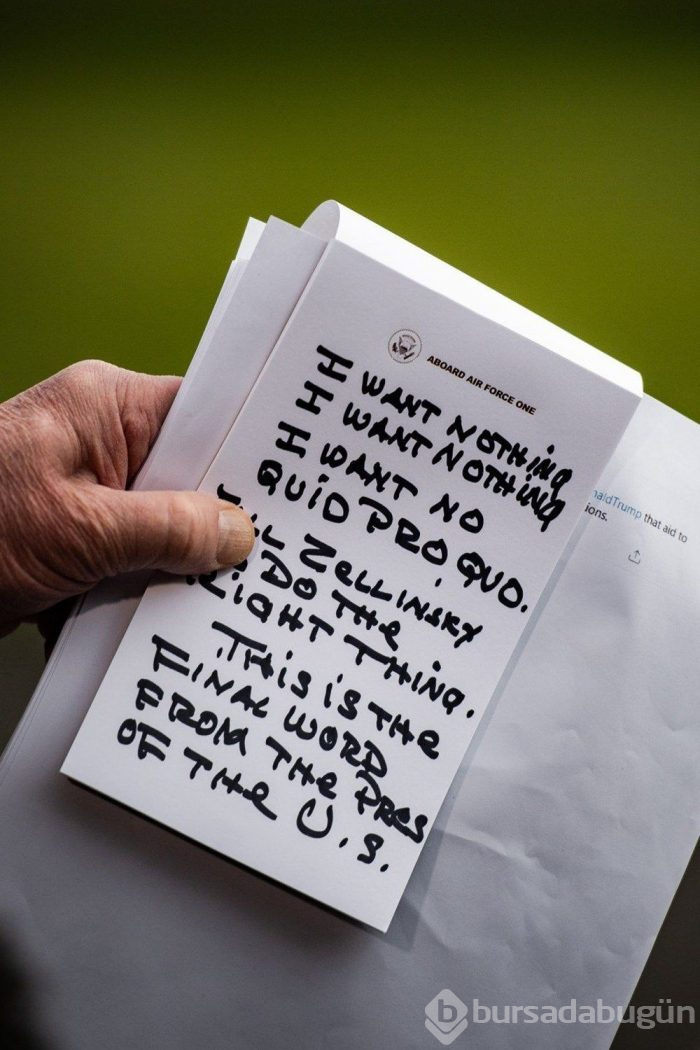 ABOARD AIR FORCE ONE
I WANT NOTHING
I WANT NOTHING
I WANT NO
QUID PRO QUO.
ZELLINSKY
DO THE
RIGHT THING.
.THIS IS THE
FINAL WORD
FROM THE PRES
OF THE U.S.
naldTrump that aid to
ions.
bursadabugün